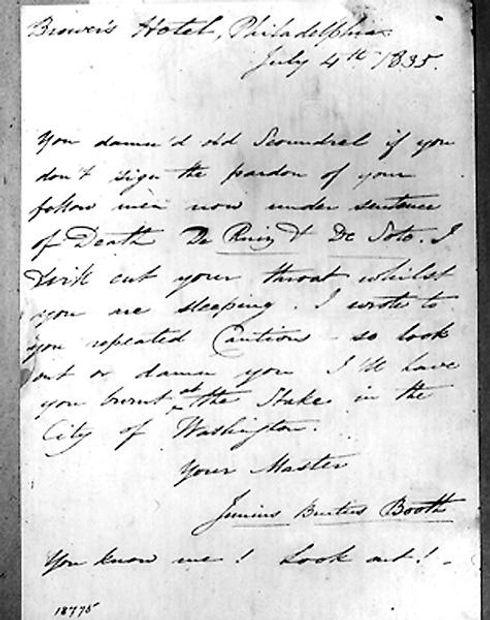 Brower's Hotel, Philadelphia
July 4th 1835.
You damn'd old Scoundrel if you
don't sign the pardon of your
fellow men now under sentence
of Death De Ruiz & De Soto. I
will cut your throat whilst
you are sleeping. I wrote to
you repeated Cautions - so look
out or damn you I'll have
you burnt at the Stake in the
City of Washington.
Your Master
Junius Brutus Booth
You know me! Look out! -
18775